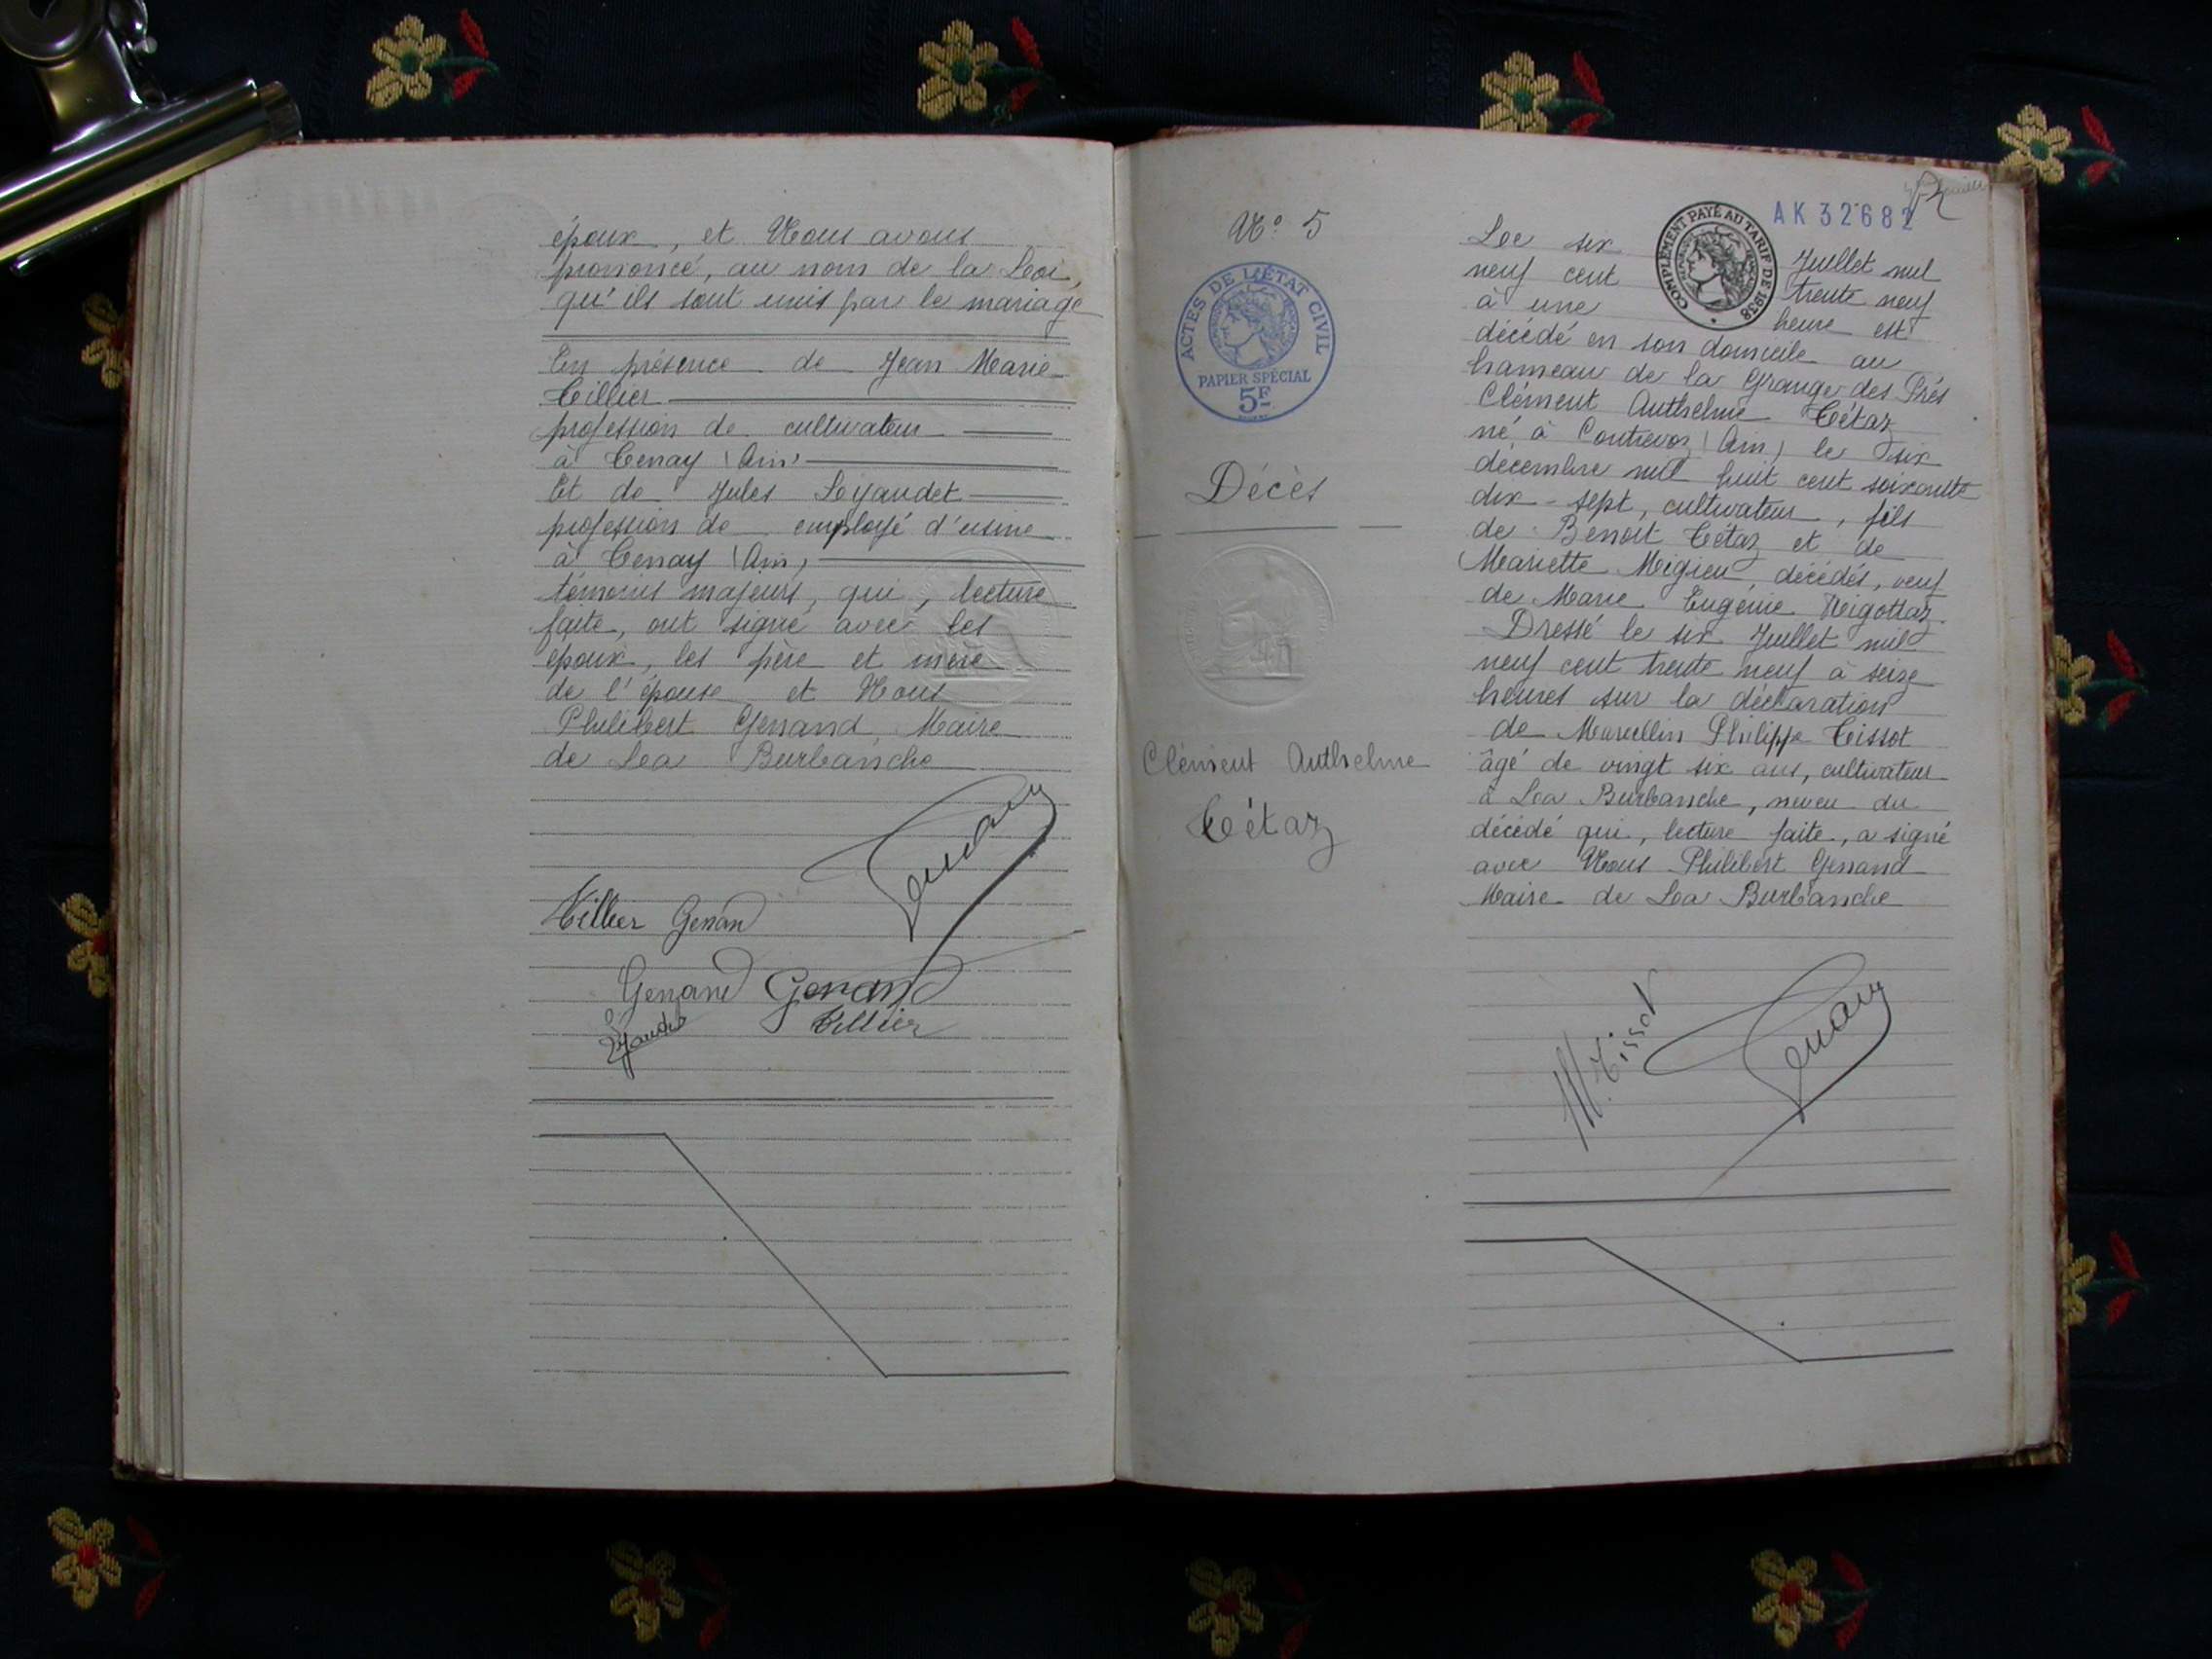 époux, et Nous avons
prononcé, au nom de la Loi,
qu'ils sont unis par le mariage
En présence de Jean Marie
Tillier
profession de cultivateur
à Tenay (Ain)
Et de Jules Leyaudet
profession de employé d'usine
à Tenay (Ain)
témoins majeurs, qui, lecture
faite, ont signé avec les
époux, les père et mère
de l'épouse et Nous
Philibert Genand Maire
de La Burbanche
Tillier Genand
Genand Genand
Tillier
N° 5
ACTES DE L'ÉTAT CIVIL
PAPIER SPÉCIAL
5F
Décès
Clément Anthelme
Tétaz
AK 32682
COMPLÉMENT PAYÉ AU TARIF DE 1938
Le six Juillet mil
neuf cent trente neuf
à une heure est
décédé en son domicile au
hameau de la Grange des Prés
Clément Anthelme Tétaz
né à Contrevoz (Ain) le six
décembre mil huit cent soixante
dix-sept, cultivateur, fils
de Benoit Tétaz et de
Mariette Migieu, décédés, veuf
de Marie Eugénie Rigottaz.
Dressé le six Juillet mil
neuf cent trente neuf à seize
heures sur la déclaration
de Marcellin Philippe Tissot
âgé de vingt six ans, cultivateur
à La Burbanche, neveu du
décédé qui, lecture faite, a signé
avec Nous Philibert Genand
Maire de La Burbanche
M. Tissot